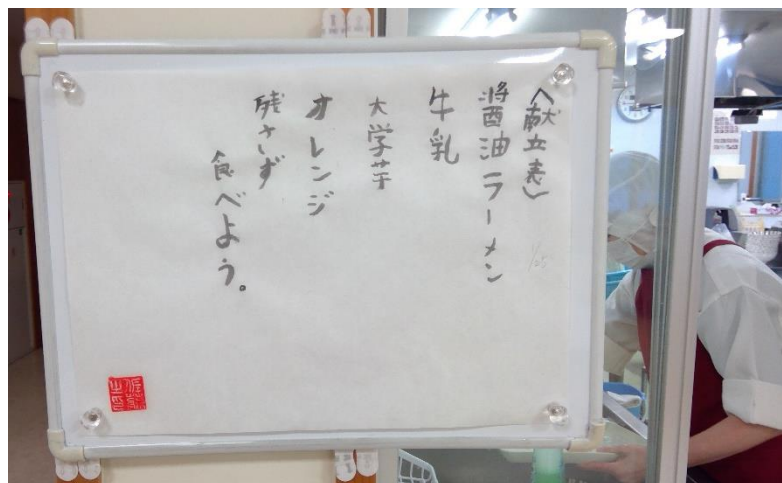 〈献立表〉
醤油ラーメン
牛乳
大学芋
オレンジ
残さず
食べよう。